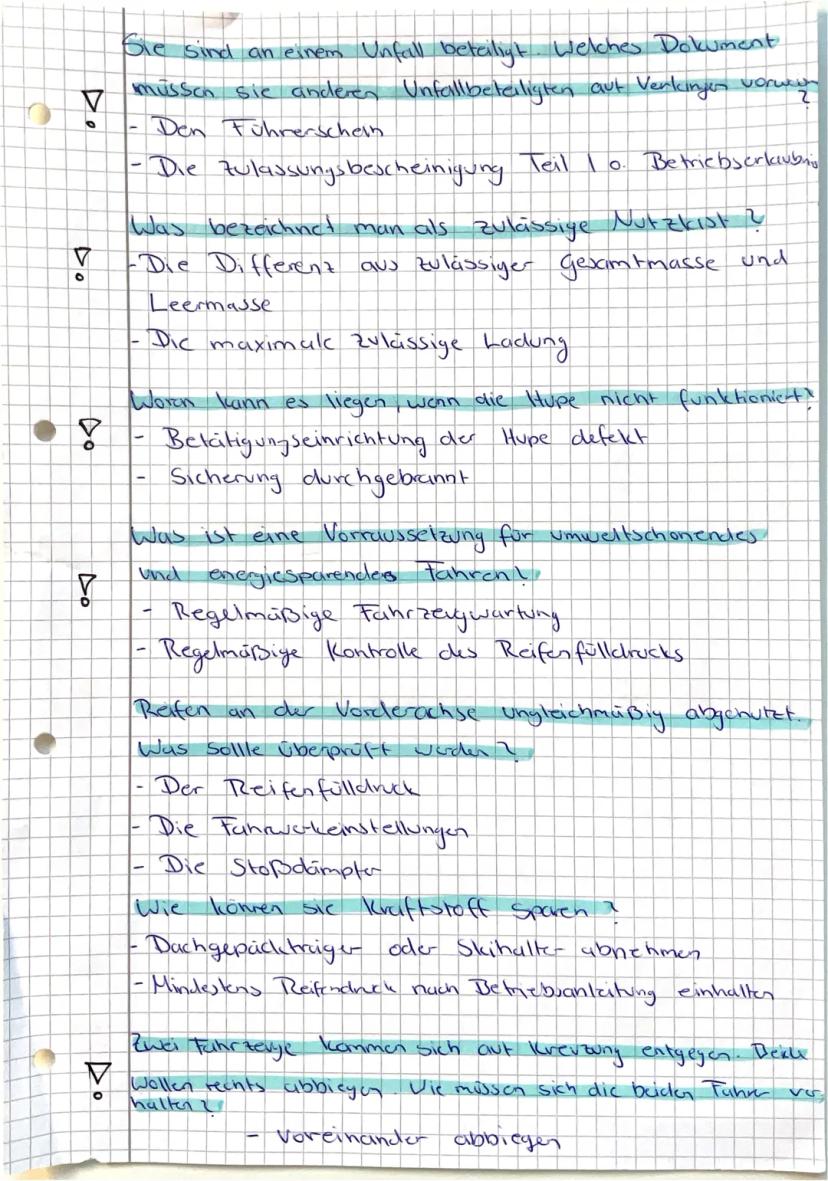 Sie sind an einem Unfall beteiligt. Welches Dokument
müssen sie anderen Unfallbeteiligten auf Verlangen
- Den Führerschein
- Die Zulassungsbescheinigung Teil 1 o. Betriebserlaubnis
Was bezeichnet man als zulässige Nutzlast?
- Die Differenz aus zulässiger Gesamtmasse und
Leermasse
- Die maximale zulässige Ladung
Woran kann es liegen, wenn die Hupe nicht funktioniert?
- Betätigungseinrichtung der Hupe defekt
- Sicherung durchgebrannt
Was ist eine Vorraussetzung für umweltschonendes
und energiesparendes Fahren?
- Regelmäßige Fahrzeugwartung
- Regelmäßige Kontrolle des Reifenfülldrucks
Reifen an der Vorderachse ungleichmäßig abgenutzt.
Was sollte überprüft werden?
- Der Reifenfülldruck
- Die Fahrwerkeinstellungen
- Die Stoßdämpfer
Wie können sie Kraftstoff sparen?
- Dachgepäckträger oder Skihalter abnehmen
- Mindestens Reifendruck nach Betriebsanleitung einhalten
Zwei Fahrzeuge kommen sich auf Kreuzung entgegen. Beide
wollen rechts abbiegen. Wie müssen sich die beiden Fahrer ver
halten?
- voreinander abbiegen